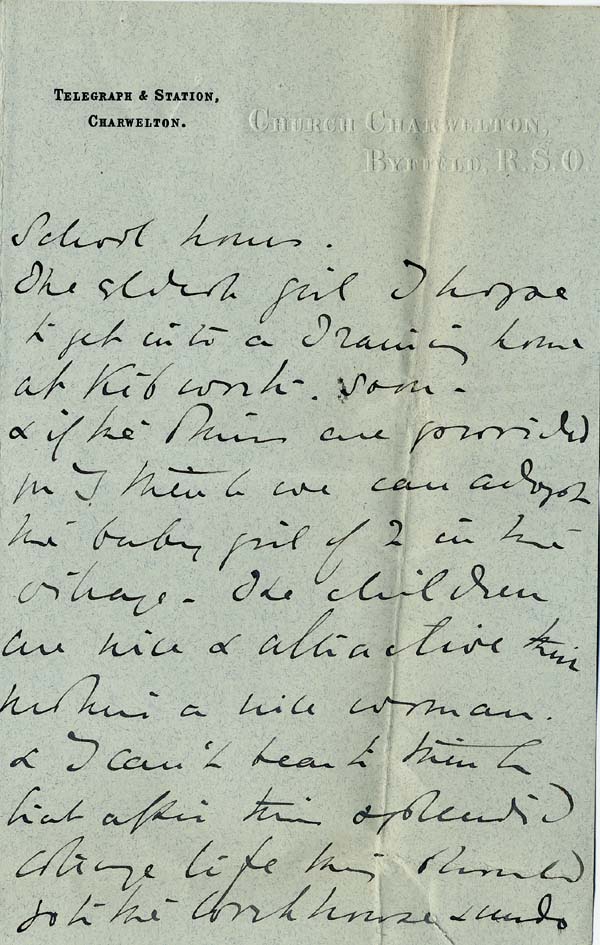 TELEGRAPH & STATION,
CHARWELTON.
CHURCH CHARWELTON,
BYFIELD, R.S.O.
School hours.
The eldest girl I hope
to get into a Training home
at Kibworth. soon -
& if the others are provided
for I think we can adopt
the baby girl of 2 in the
village - The children
are nice & attractive their
mother a nice woman.
& I can't bear to think
that after this splendid
cottage life they should
go to the workhouse &